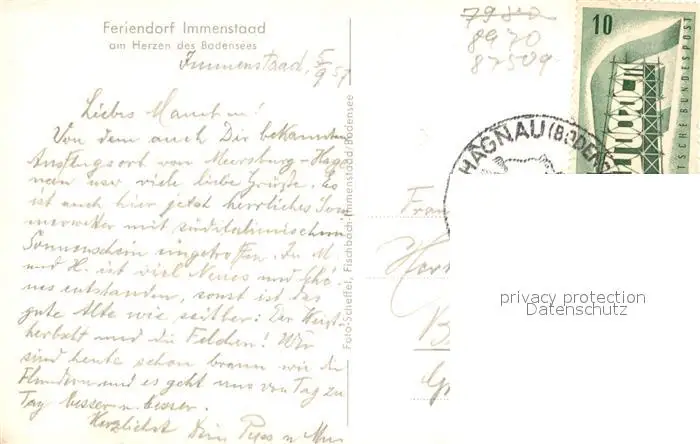 Feriendorf Immenstaad
am Herzen des Bodensees
Immenstaad, 5/9 57
Liebes
Von dem auch Dir bekannten
Ausflugsort von Meersburg-Hag-
nau usw viele liebe Grüße. Es
ist auch hier jetzt herrliches Som
merwetter mit süditalienischem
Sonnenschein eingetroffen. In M.
und H. ist viel Neues und Schö-
nes entstanden, sonst ist das
gute Alte wie seither: Der
und die Felchen! Wir
sind heute schon braun wie die
und es geht uns von Tag zu
Tag besser u. besser.
Herzlichst Dein
Foto-Scheffel, Fischbach-Immenstaad/Bodensee
79
8970
87509
10
DEUTSCHE BUNDESPOST
HAGNAU (BODENSEE
Frau
privacy protection
Datenschutz